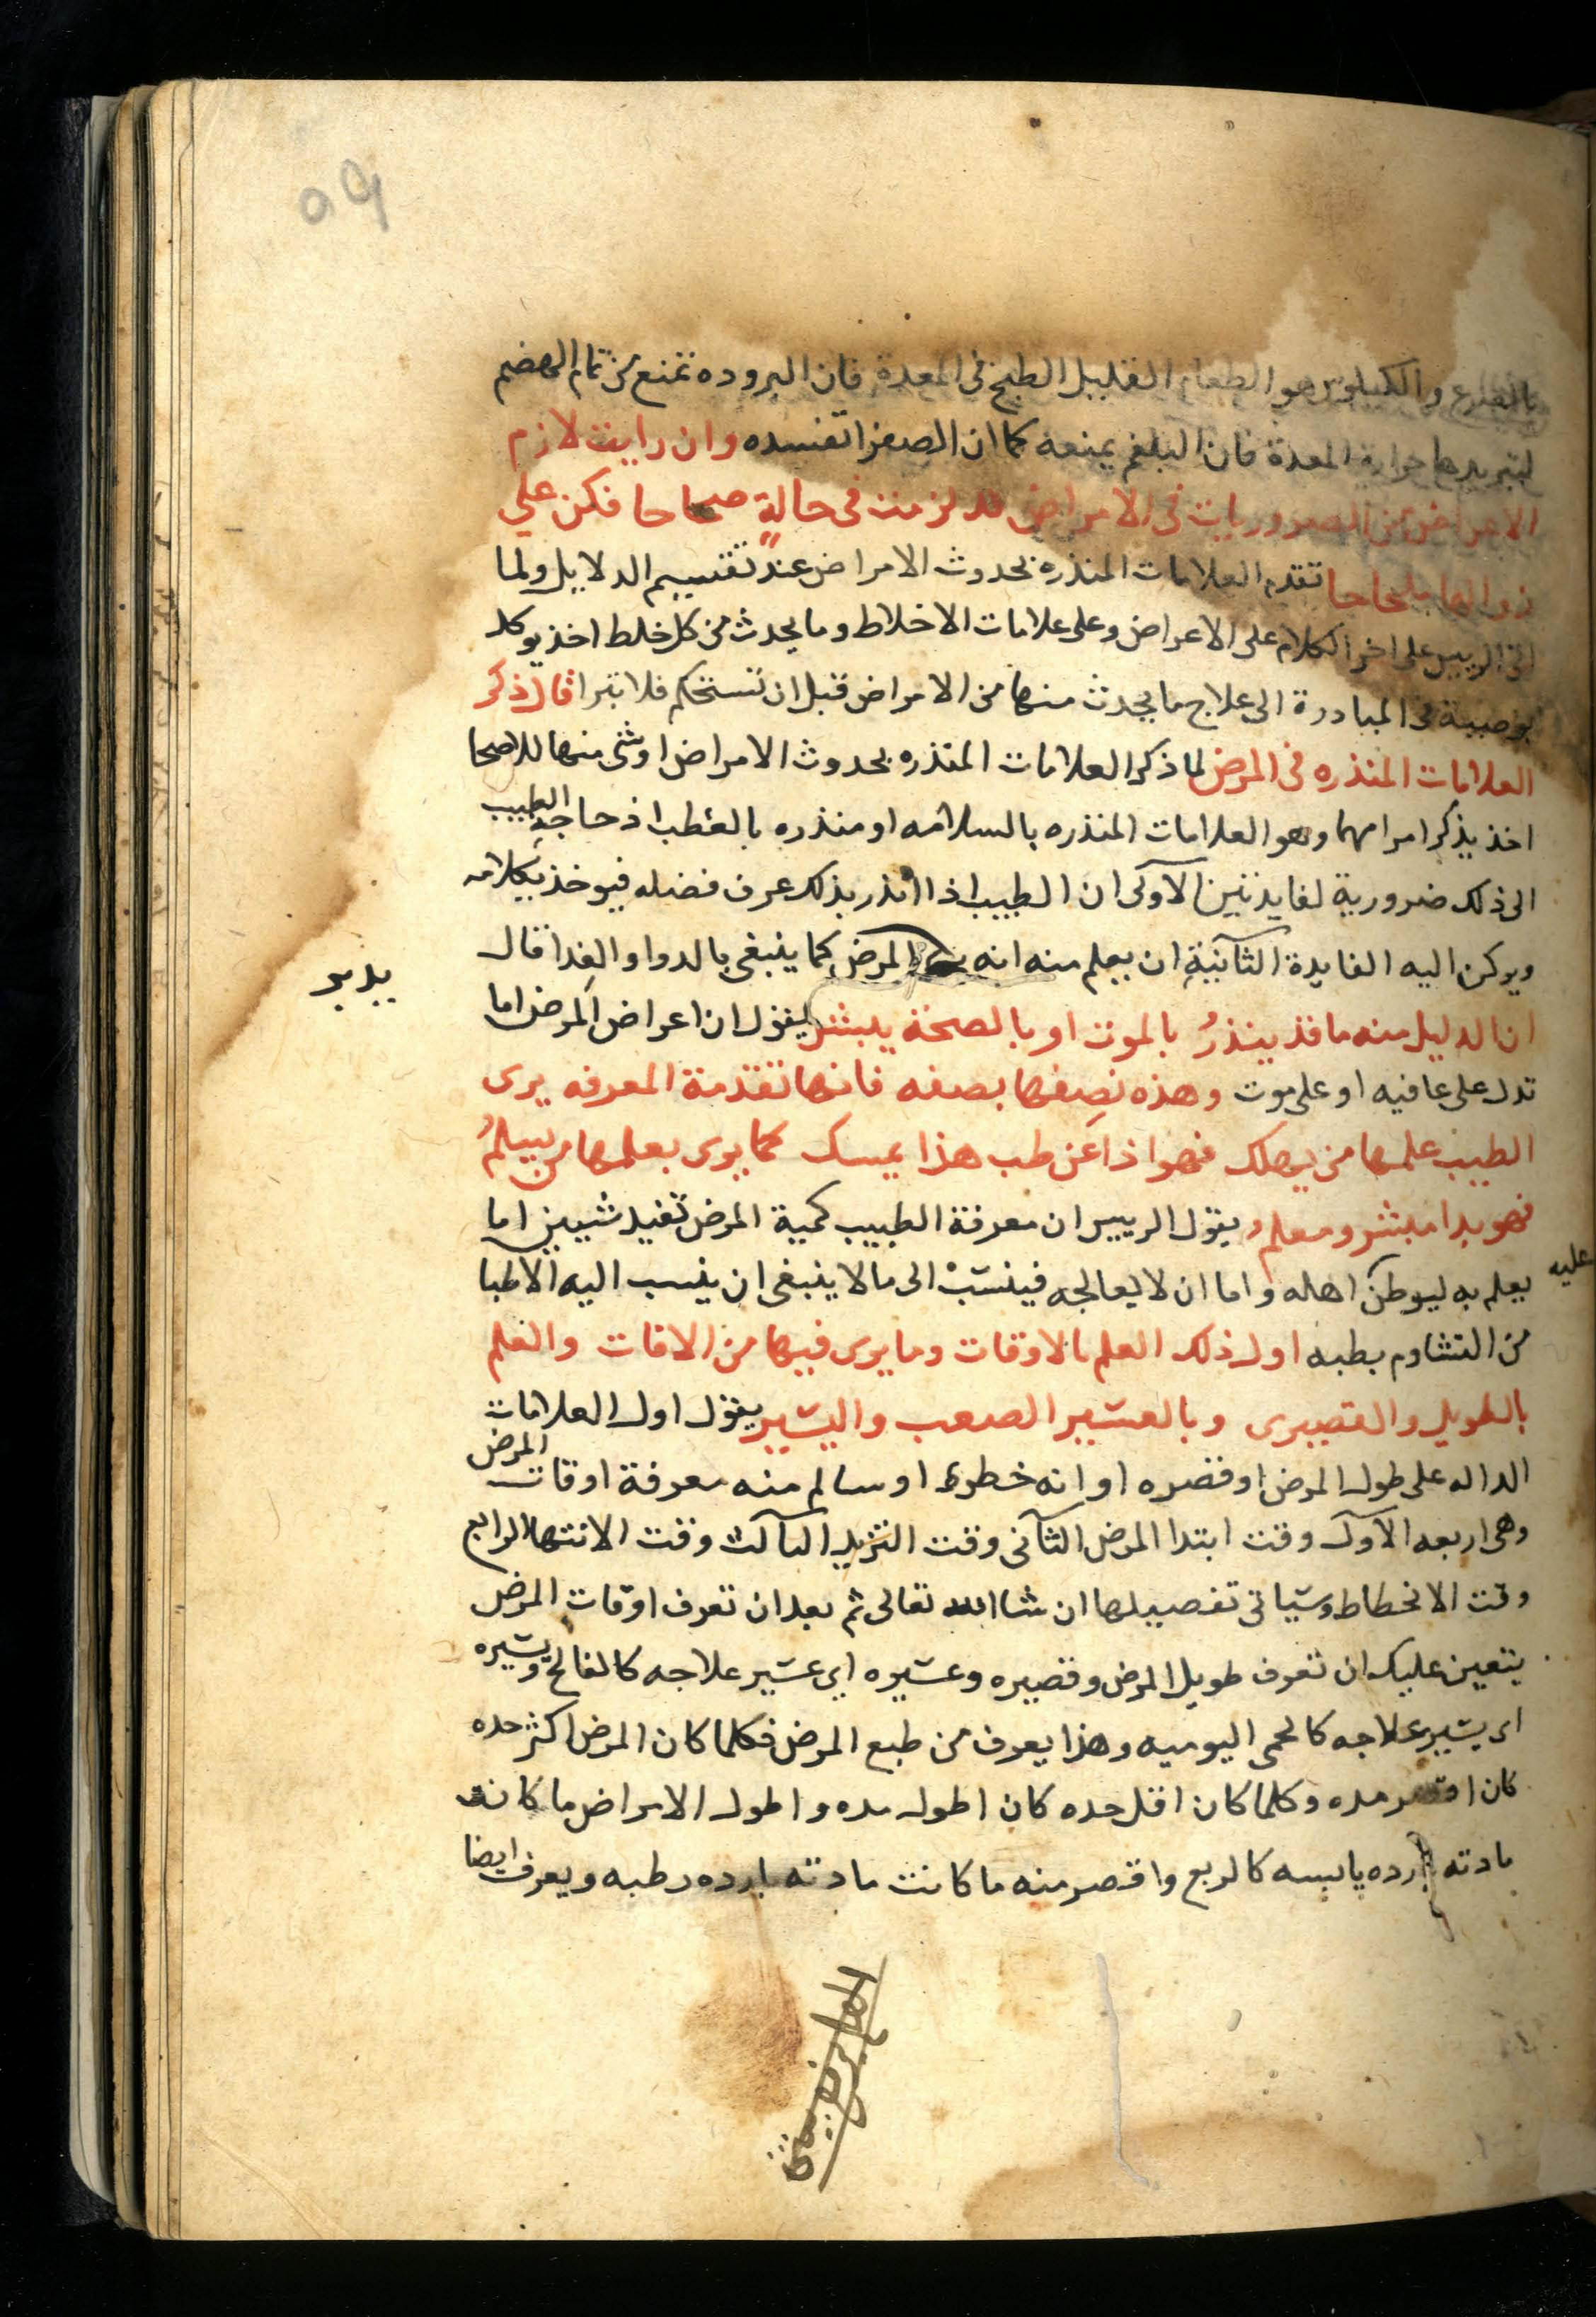 ٥٩
والكيلوس هو الطعام القليل الطبخ في المعدة فان البروده تمنع من تمام الهضم
لتبريدها حرارة المعدة فان البلغم يمنعه كما ان الصفرا تفسده وان رايت لازم
الاعراض من الضروريات في الامراض قد لزمت في حالةٍ صحاحا فكن علي
زوالها ملحاحا تقدم العلامات المنذره بحدوث الامراض عند تقسيم الدلايل ولما
اتى الرييس على اخر الكلام على الاعراض وعلى علامات الاخلاط وما يحدث من كل خلط اخذ يوكد
بوصيبة في المبادرة الى علاج ما يحدث منها من الامراض قبل ان تستحكم فلا تبرا قال ذكر
العلامات المنذره في المرض لما ذكر العلامات المنذره بحدوث الامراض اوشى منها للاصحا
اخذ يذكر امرا مهما وهو العلامات المنذره بالسلامه او منذره بالعطب اذ حاجة الطبيب
الى ذلك ضرورية لفايدتين الآوكى ان الطبيب اذا انذر بذلك عرف فضله فيوخذ بكلامه
ويركن اليه الفايدة الثآنية ان يعلم منه انه المرض كما ينبغى بالدوا والغذا قال
يدبر
ان الدليل منه ما قد ينذرُ بالموت او بالصحة يبشر يقول ان اعراض المرض اما
تدل على عافيه او على موت وهذه نصفها بصفه فانها تقدمة المعرفه يرى
الطبيب علمها من يهلك فهو اذا عن طب هذا يمسك كما يرى بعلمها من يسلمُ
فهو بدا مبشر ومعلمُ يقول الرييس ان معرفة الطبيب كمية المرض تفيد شيين اما
عليه
يعلم به ليوطن اهله واما ان لا يعالجه فينسبْ الى ما لا ينبغى ان ينسب اليه الاطبا
من التشاوم بطبه اول ذلك العلم بالاوقات وما يرى فيها من الافات والعلم
بالطويل والقصيرى وبالعسير الصعب واليسير يقول اول العلامات
الداله على طول المرض او قصره او انه خطر او سالم منه معرفة اوقات المرض
وهى اربعه الآول وقت ابتدا المرض الثآنى وقت التزيد الثآلث وقت الانتها الرابع
وقت الانحطاط وسياتى تفصيلها ان شا الله تعالى ثم بعد ان تعرف اوقات المرض
يتعين عليك ان تعرف طويل المرض وقصيره وعسيره اي عسير علاجه كالفالج ويسيره
اى يسير علاجه كالحمى اليوميه وهذا يعرف من طبع المرض فكلما كان المرض اكثر حده
كان اقصر مده وكلما كان اقل حده كان اطول مده واطول الامراض ما كانت
مادته بارده يابسه كالربع واقصر منه ما كانت مادته بارده رطبه ويعرف ايضا